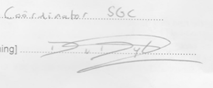 Coördinator SGC
ning]